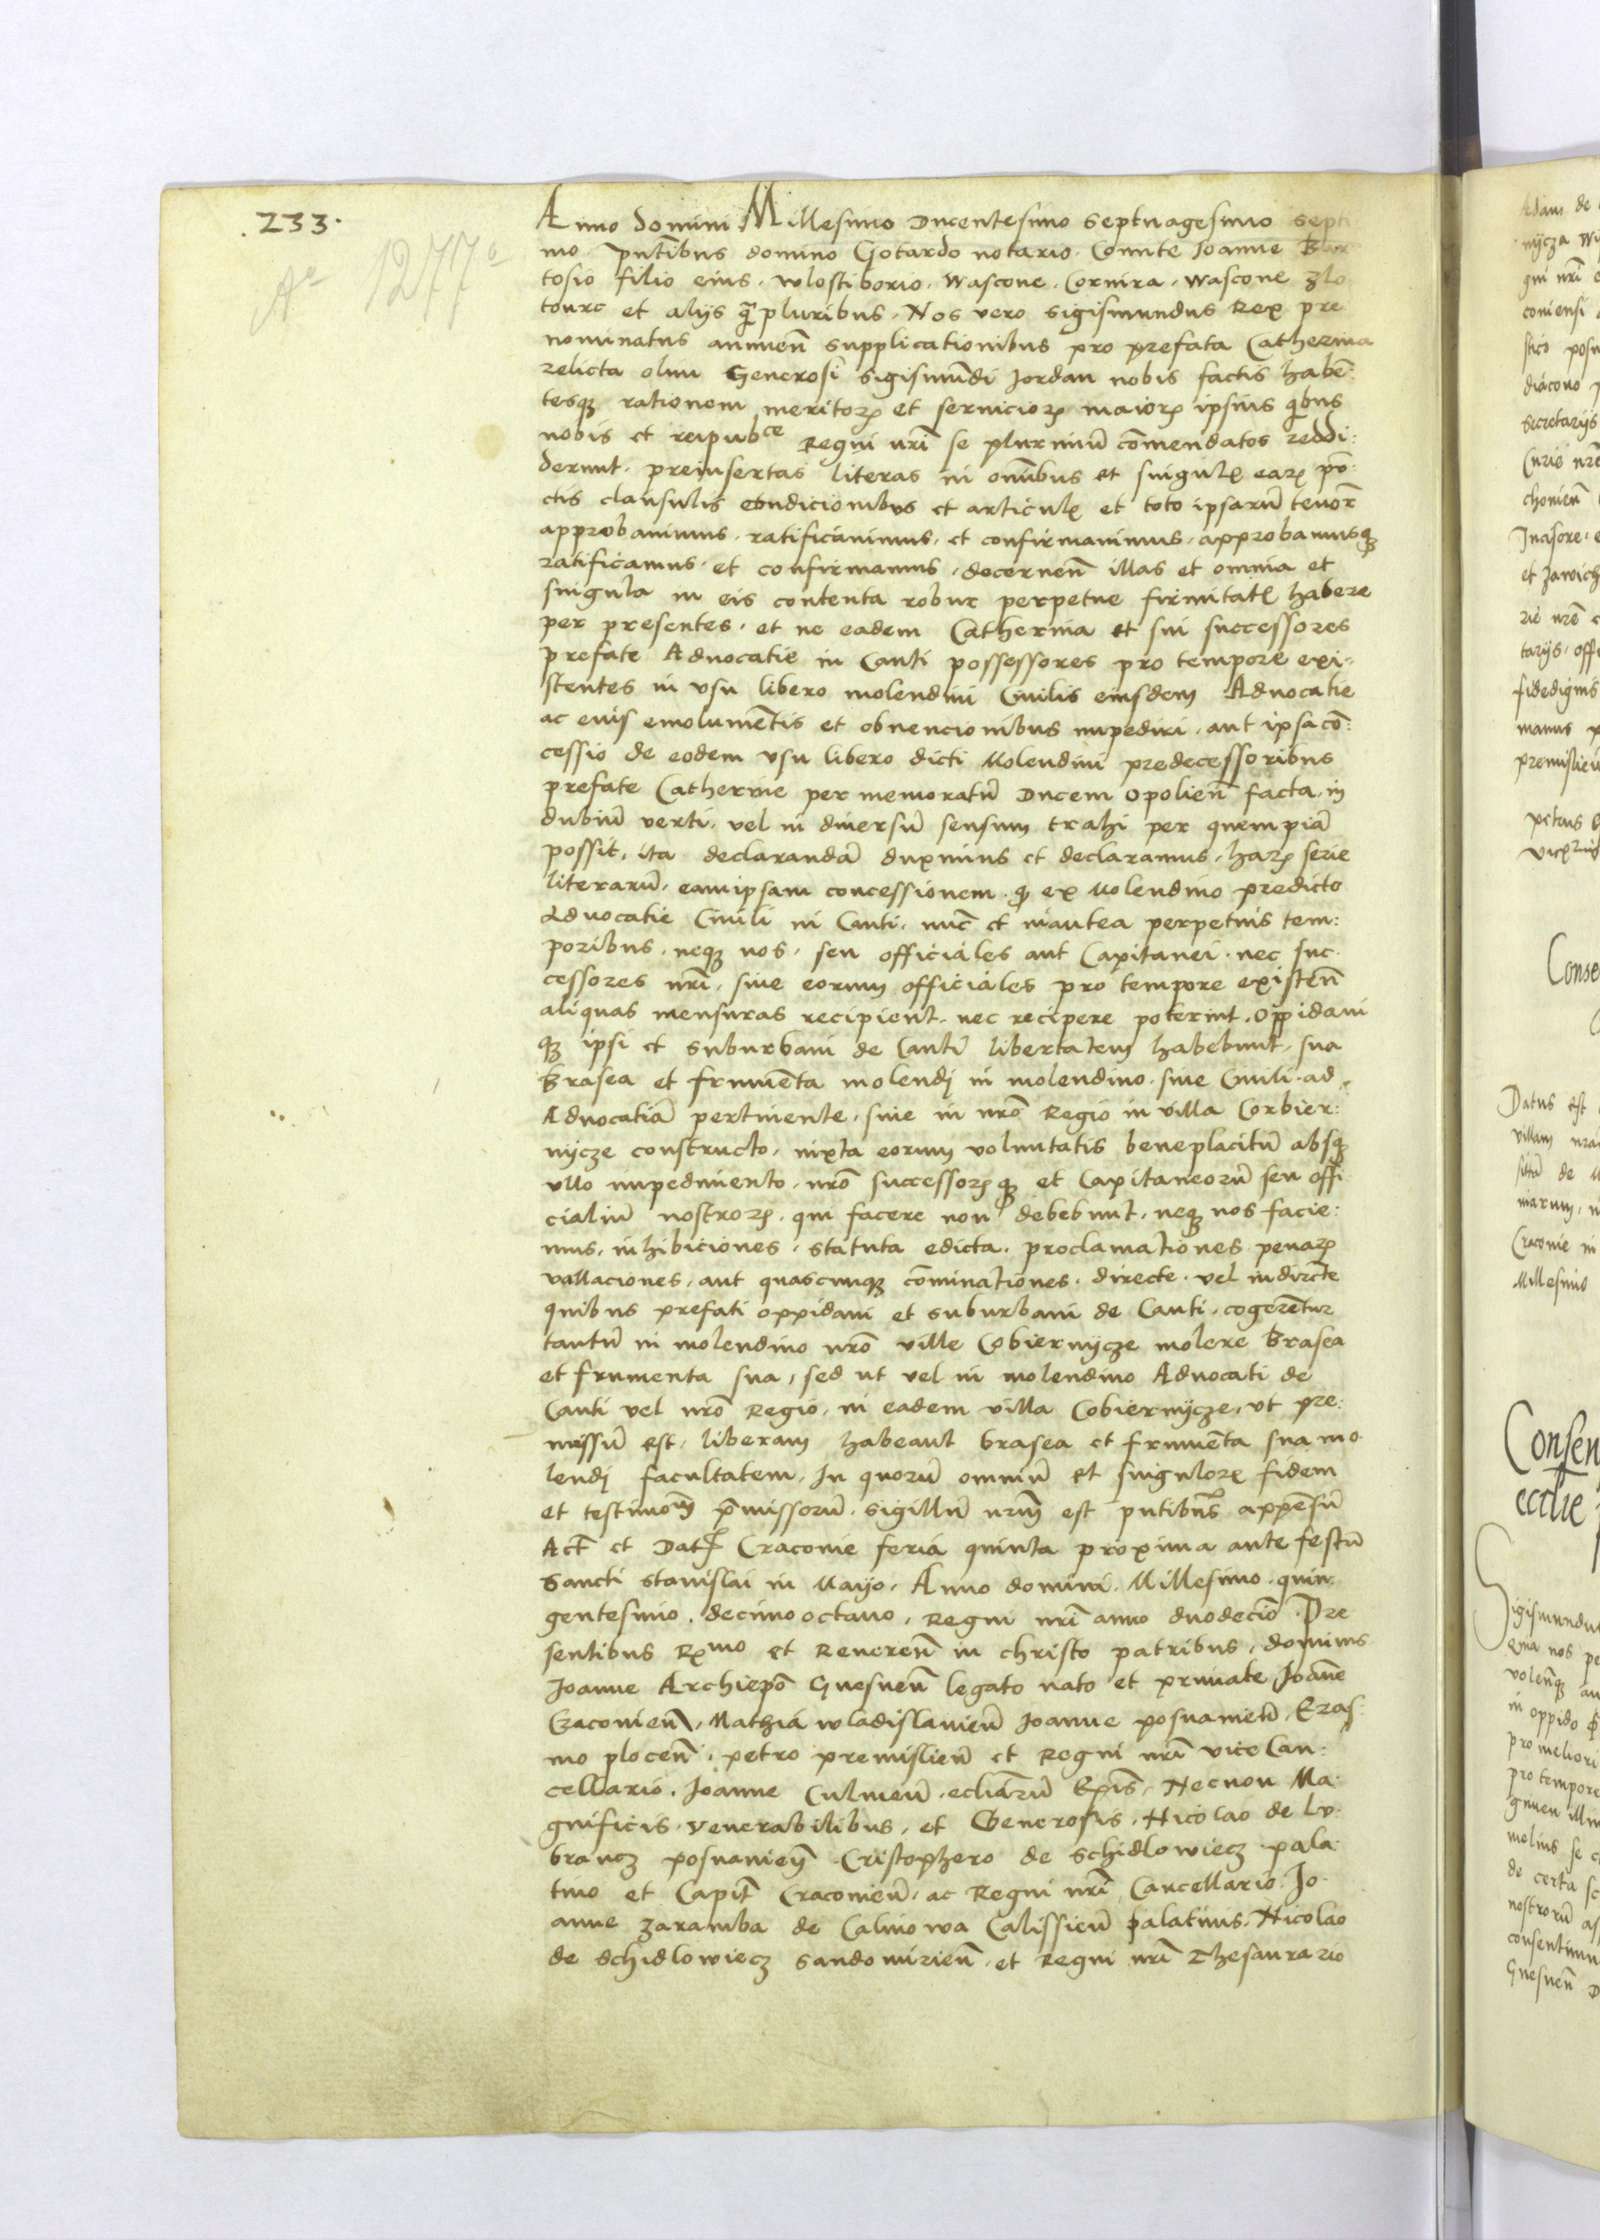 233.
Aº 1277º
Anno domini Millesimo Ducentesimo septuagesimo septi
mo. pñtibus domino Gotardo notario. Comite Joanne
tosio filio eius. wlostiborio. wascone. Cornira. wascone zlo
tourc et alijs q̃pluribus. Nos vero Sigismundus Rex pre
nominatus annuen̄ supplicationibus pro prefata Catherina
relicta olim Generosi Sigismūdi Jordan nobis factis habē:
tesqꝫ rationem meritoꝝ et seruicioꝝ maioꝝ ipsius qibus
nobis et reipubce Regni nrī se plurimū cōmendatos reddi:
derunt. preinsertas literas in omībus et singulꝭ eaꝝ pū:
ctis clausulis condicionibus et articulꝭ et toto ipsarū tenorē
approbauimus. ratificauimus. et confirmauimus. approbamusqꝫ
ratificamus. et confirmamus. decernen̄ illas et omnia et
singula in eis contenta robur perpetue firmitatꝭ habere
per presentes. et ne eadem Catherina et sui successores
prefate Aduocatie in Canti possessores pro tempore exi:
stentes in vsu libero molendini Ciuilis eiusdem Aduocatie
ac eius emolumētis et obuencionibus impediri. aut ipsa cō:
cessio de eodem vsu libero dicti Molendini predecessoribus
prefate Catherine per memoratū Ducem Opolien̄ facta. in
dubiū verti. vel in diuersū sensum trahi per quempiā
possit. ita declarandā duximus et declaramus. haꝝ serie
literarū. eam ipsam concessionem. qꝫ ex Molendino predicto
Aduocatie Ciuili in Canti. nūc et inantea perpetuis tem:
poribus. neqꝫ nos. seu officiales aut Capitanei. nec suc
cessores nrī. siue eorum officiales pro tempore existen̄
aliquas mensuras recipient. nec recipere poterint. Oppidani
qꝫ ipsi et suburbani de Canti libertatem habebunt. sua
brasea et frumēta molendj in molendino. siue Ciuili ad
Aduocatiā pertinente. siue in nrō Regio in villa Corbier:
nycze constructo. iuxta eorum voluntatis beneplacitū absqꝫ
vllo impedimento. nrō successoꝝqꝫ et Capitaneorū seu offi
cialiū nostroꝝ. qui facere non debebunt. neqꝫ nos facie:
mus. inhibiciones. statuta edicta. proclamationes penaꝝ
vallaciones. aut quascunqꝫ cōminationes. directe. vel indirēte
quibus prefati oppidani et suburbani de Canti. cogerētur
tantū in molendino nrō ville Cobiernycze molere brasea
et frumenta sua. sed ut vel in molendino Aduocati de
Canti vel nrō Regio. in eadem villa Cobiernycze. vt pre:
missū est. liberam habeant brasea et frumēta sua mo
lendj facultatem. In quorū omniū et singuloꝝ fidem
et testimoīm p̄missorū. sigillū nrūm est pñtibus appēsū
Act̄ et Dat̄ Craconie feria quinta proxima ante festū
Sancti Stanislai in Mayo. Anno domini. Millesimo. quin
gentesimo. decimo octauo. Regni nrī anno duodecīo. Pre
sentibus Rꝫmo et Reueren̄ in christo patribus. dominis
Joanne Archiepō Gnesnen̄ legato nato et primate Joāne
Craconien̄. Mathia wladislauien̄ Joanne posnanien̄. Eras:
mo plocen̄. petro premislien̄ et Regni nrī vice Can:
cellario. Joanne Culmen̄. ecliarū Epīs. Necnon Ma:
gnificis. venerabilibus. et Generosis. Nicolao de Lu:
brancz posnanien̄. Cristophero de Schidlowiecz pala:
tino et Capit̄ Craconien̄. ac Regni nrī Cancellario. Jo
anne zaramba de Calinowa Calissien̄ palatinis. Nicolao
de Schidlowiecz sandomirien̄. et Regni nrī Thesaurario